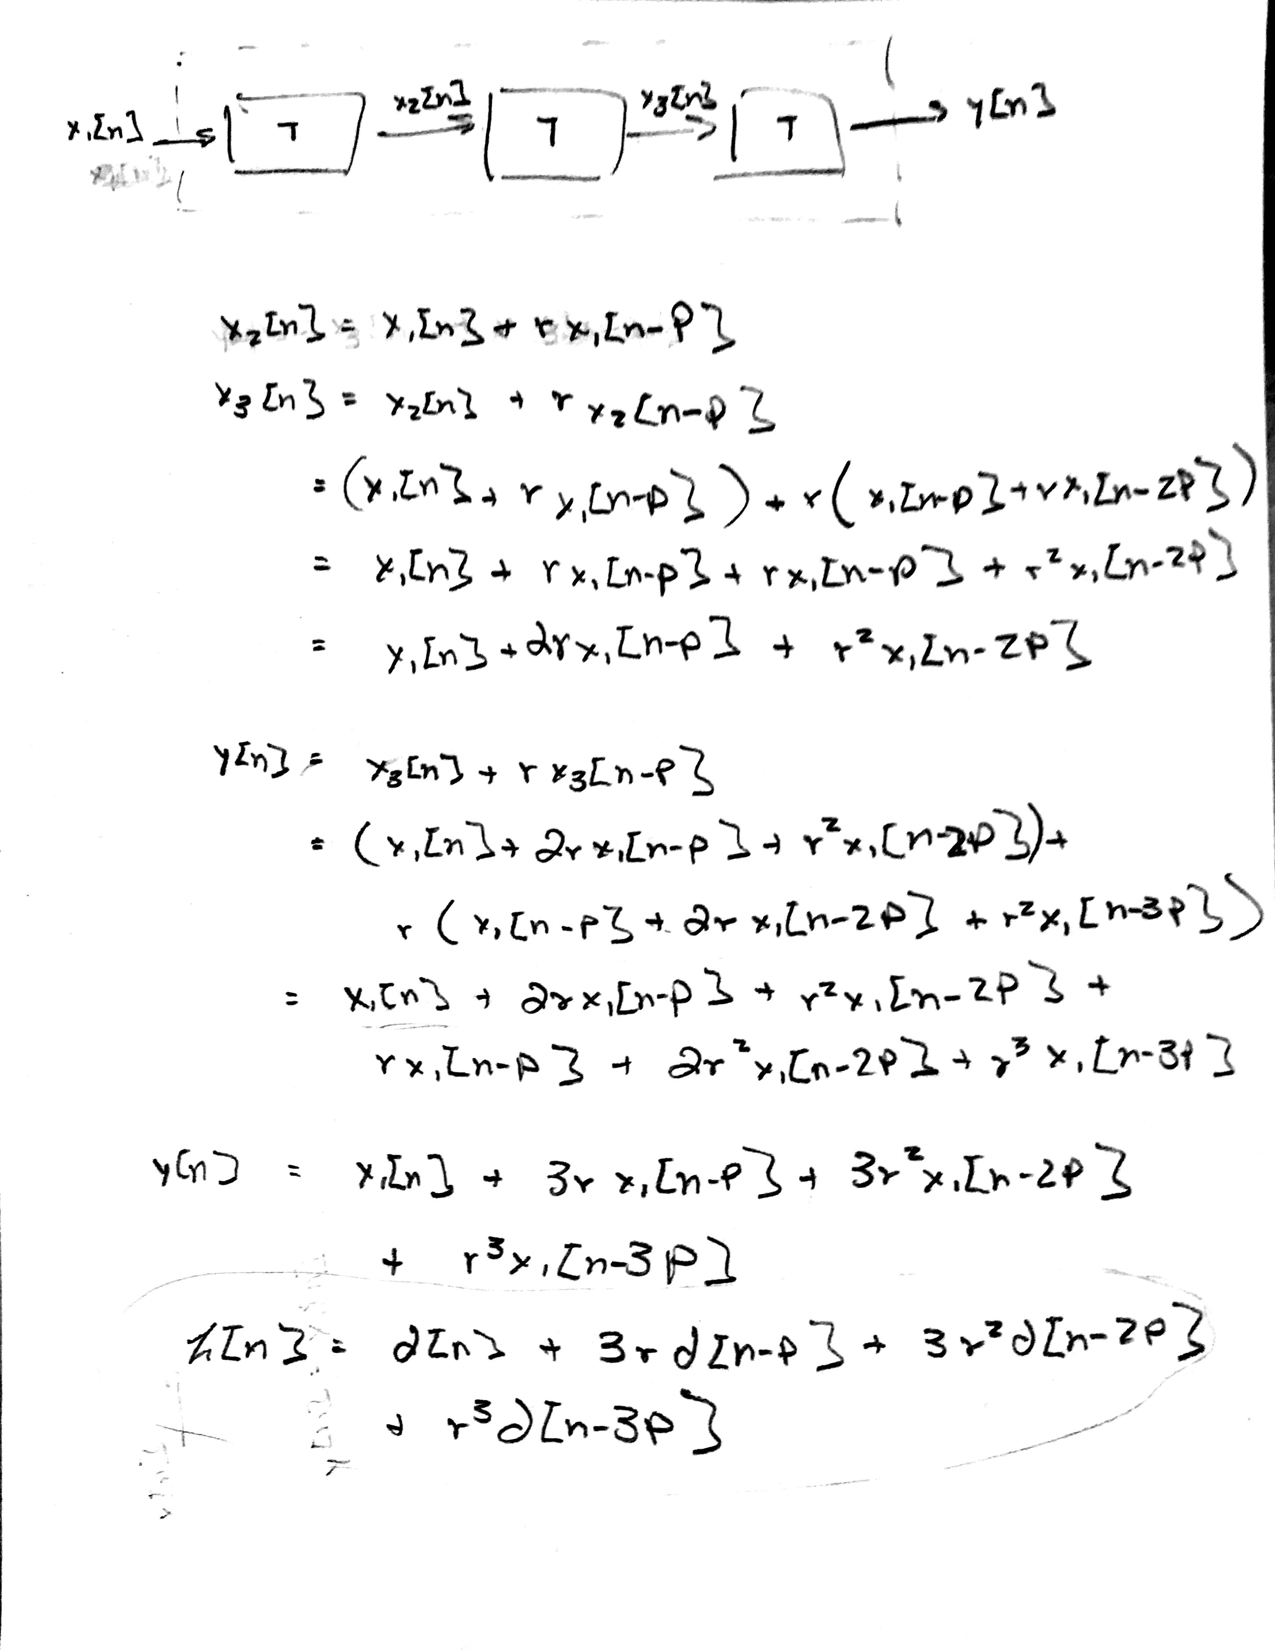 x₁[n] → T x₂[n] → T x₃[n] → T → y[n]
x₂[n] = x₁[n] + r x₁[n-P]
x₃[n] = x₂[n] + r x₂[n-P]
= (x₁[n] + r x₁[n-P]) + r(x₁[n-P] + r x₁[n-2P])
= x₁[n] + r x₁[n-P] + r x₁[n-P] + r² x₁[n-2P]
= x₁[n] + 2r x₁[n-P] + r² x₁[n-2P]
y[n] = x₃[n] + r x₃[n-P]
= (x₁[n] + 2r x₁[n-P] + r² x₁[n-2P]) +
r (x₁[n-P] + 2r x₁[n-2P] + r² x₁[n-3P])
= x₁[n] + 2r x₁[n-P] + r² x₁[n-2P] +
r x₁[n-P] + 2r² x₁[n-2P] + r³ x₁[n-3P]
y[n] = x₁[n] + 3r x₁[n-P] + 3r² x₁[n-2P]
+ r³ x₁[n-3P]
h[n] = ∂[n] + 3r ∂[n-P] + 3r² ∂[n-2P]
+ r³ ∂[n-3P]